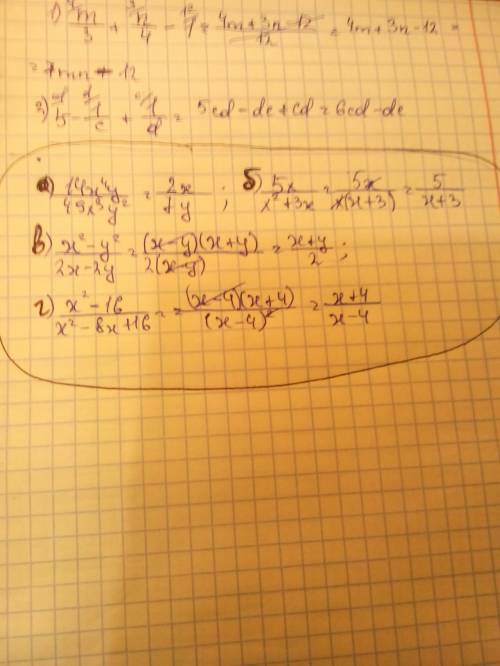 1) ⁴m/3 + ³n/4 - ¹²1 = 4m+3n-12/12 = 4m+3n-12 =
= 7mn - 12
2) 5 - 1/c + 1/d = 5cd - dc + cd = 6cd - dc
а) 14x⁴y/49x³y² = 2x/7y ; б) 5x/x²+3x = 5x/x(x+3) = 5/x+3
в) x²-y²/2x-2y = (x-y)(x+y)/2(x-y) = x+y/2 ;
г) x²-16/x²-8x+16 = = (x-4)(x+4)/(x-4)² = x+4/x-4